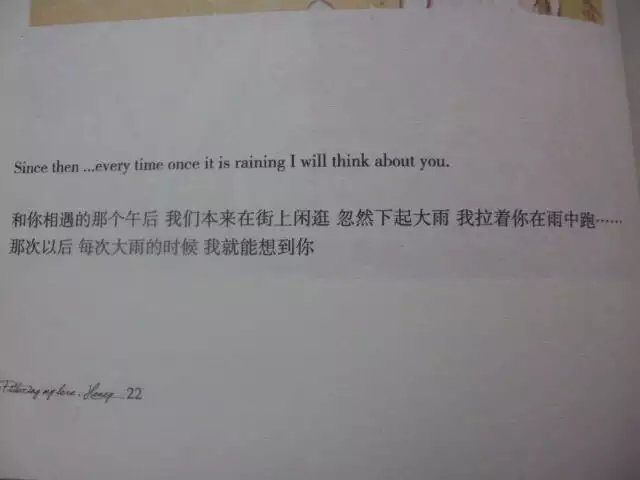 Since then ...every time once it is raining I will think about you.
和你相遇的那个午后 我们本来在街上闲逛 忽然下起大雨 我拉着你在雨中跑……
那次以后 每次大雨的时候 我就能想到你
Following my love. Honey 22